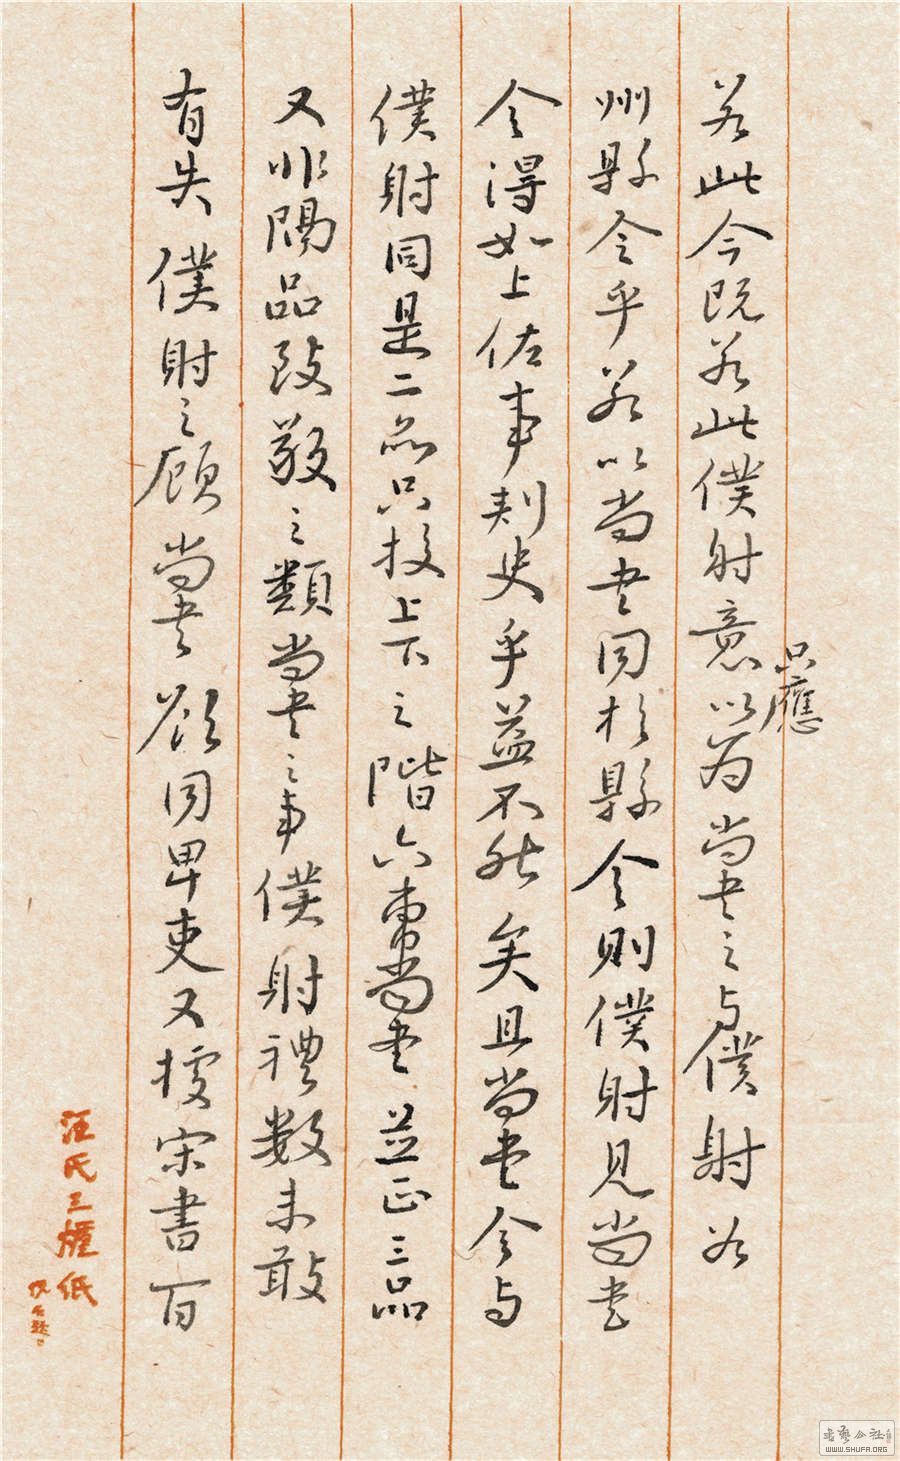 若此今既若此僕射意以为尚書之与僕射若
只應
州縣令乎若以尚書同於縣令則僕射見尚書
令得如上佐事刾史乎益不然矣且尚書令与
僕射同是二品只挍上下之階六曹尚書並正三品
又非隔品致敬之類尚書之事僕射禮數未敢
有失僕射之顧尚書欲同卑吏又據宋書百
汪氏三紙
書藝公社
WWW.SHUFA.ORG